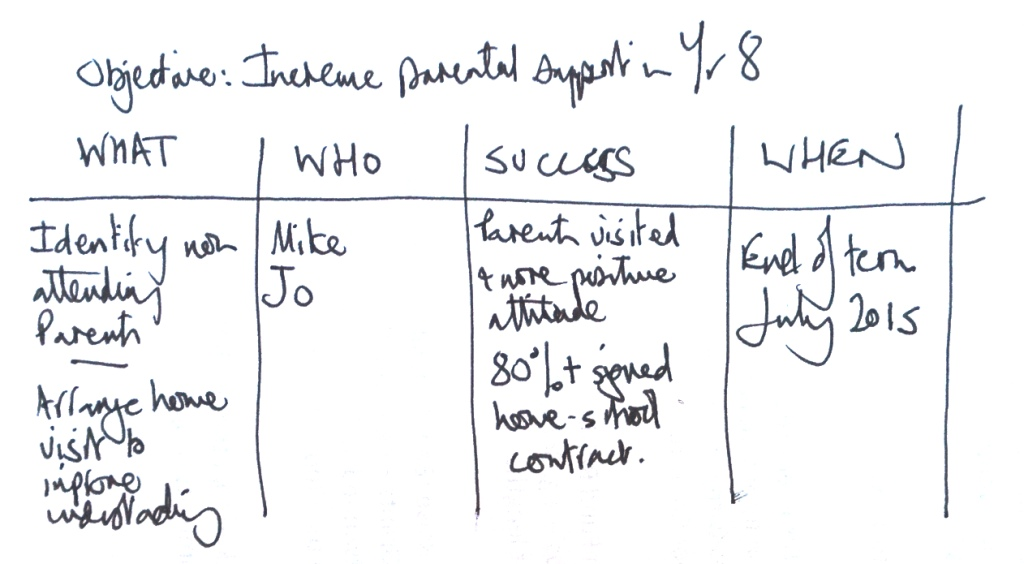 Objective: Increase parental support in Yr 8
WHAT WHO SUCCESS WHEN
Identify non
attending
Parents
Arrange home
visit to
improve
understanding
Mike
Jo
Parents visited
& more positive
attitude
80%+ signed
home-school
contract.
End of term
July 2015